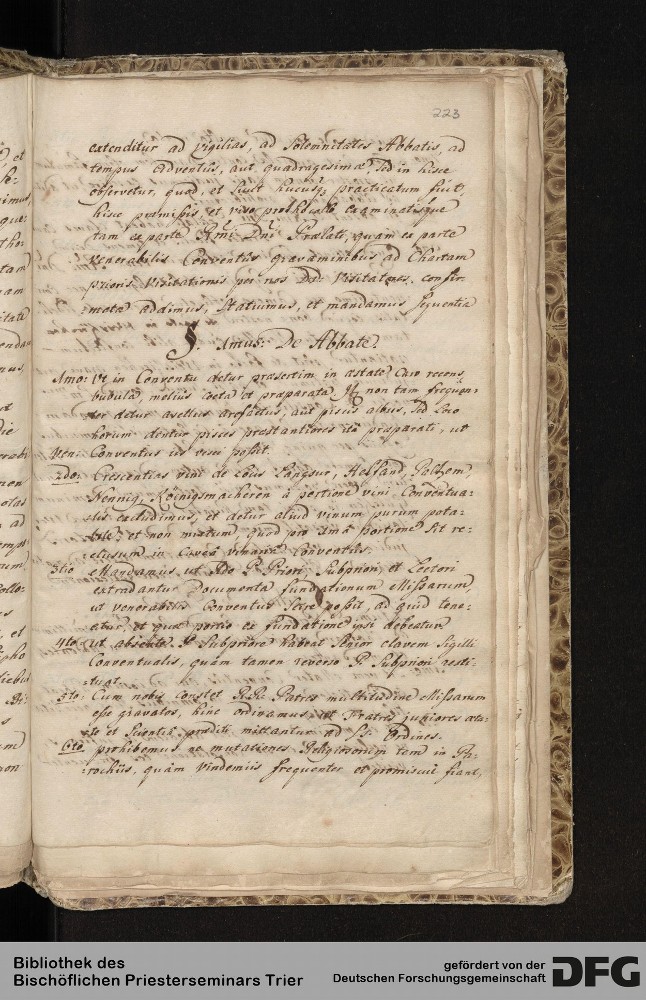 223
extenditur ad vigilias, ad Solemnitates Abbatis, ad
tempus adventûs, aut quadragesimæ, sed in hisce
observetur, quod, et sicut hucusq practicatum fuit,
hisce præmissis et viso examinatisque
tam ex parte Rmi Dni Prælati, quam ex parte
venerabilis Conventûs gravaminibus ad Chartam
prioris Visitationis per nos Visitatores confir-
:mata addimus, statuimus, et mandamus sequentia
§. 1mus: De Abbate.
1mo: Ut in Conventu detur præsertim in æstate Caro recens
bubula, melius cocta et præparata non tam frequen-
ter detur asellus arefactus, aut piscis albus, sed
dentur pisces præstantiores ita præparati, ut
Ven: Conventus iis vesci possit.
2do: Crescentias vini de Langsur, Helfand, Palzem,
Nennig, Königsmacheren à portione vini Conventua-
lis excludimus, et detur aliud vinum purum pota-
bile, et non mixtum, quod pro 1mâ portione sit re-
:clusum in Caveâ vinariâ Conventûs.
3tio Mandamus, ut Rdo P. Priori, Subpriori, et Lectori
extradantur Documenta fundationum Missarum,
ut venerabilis Conventus scire possit, ad quid tene-
atur, et quæ portio ex fundatione ipsi debeatur
4to: ut absente P. Subpriore habeat Senior clavem Sigilli
Conventualis, quam tamen reverso P. Subpriori resti-
:tuat.
5to: Cum nobis constet RR. Patres multitudine Missarum
esse gravatos, hinc ordinamus, ut Fratres juniores æta-
te et Scientiâ præditi mittantur ad SS. Ordines.
6to prohibemus, ne mutationes Religiosorum tam in Pa-
:rochiis, quàm vindemiis frequenter et promiscue fiant,
Bibliothek des
Bischöflichen Priesterseminars Trier
gefördert von der
Deutschen Forschungsgemeinschaft
DFG